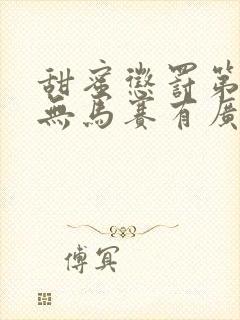 甜蜜懲罰第
無馬賽有廣
傅冥